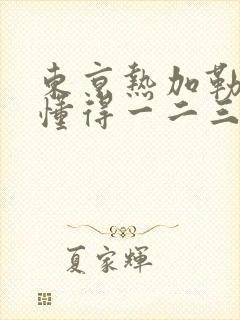 東京熱加勒
懂得一二三
夏家輝